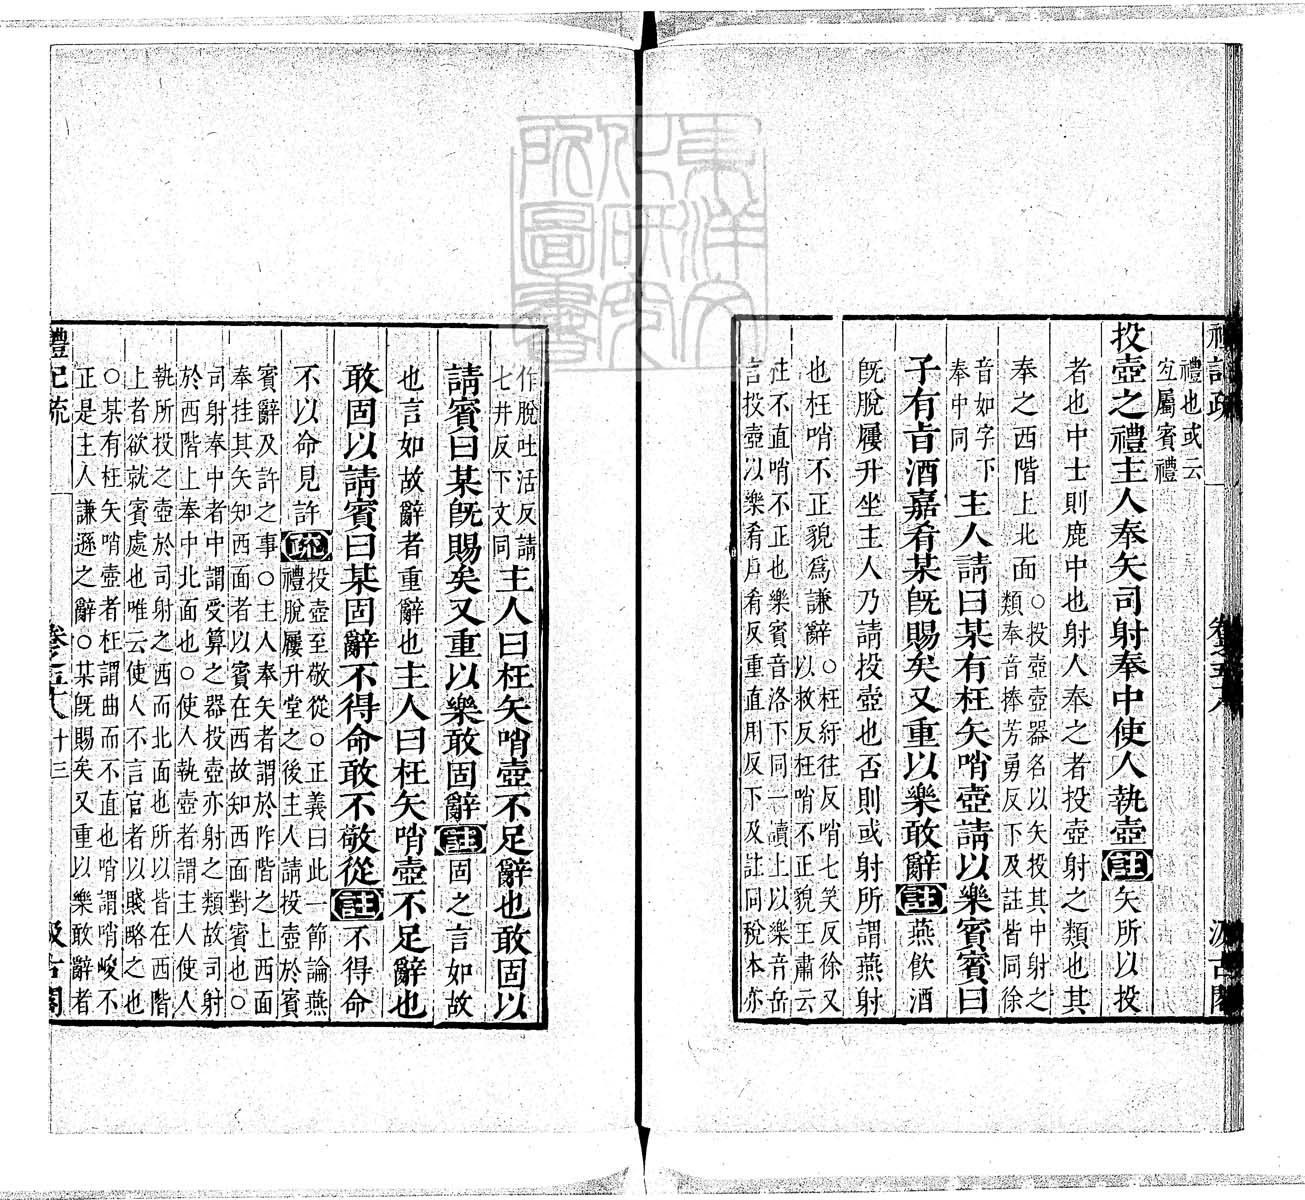 禮記疏 卷之五十八 汲古閣
禮也或云
宜屬賓禮
投壺之禮主人奉矢司射奉中使人執壺註矢所以投
者也中士則鹿中也射人奉之者投壺射之類也其
奉之西階上北面○投壺壺器名以矢投其中射之
類奉音捧芳勇反下及註皆同徐
音如字下
奉中同
主人請曰某有枉矢哨壺請以樂賓賓曰
子有旨酒嘉肴某旣賜矣又重以樂敢辭註燕飮酒
旣脫屨升坐主人乃請投壺也否則或射所謂燕射
也枉哨不正貌爲謙辭○枉紆往反哨七笑反徐又
以救反枉哨不正貌王肅云
枉不直哨不正也樂賓音洛下同一讀上以樂音岳
言投壺以樂肴戶肴反重直用反下及註同稅本亦
作脫吐活反請
七井反下文同
主人曰枉矢哨壺不足辭也敢固以
請賓曰某旣賜矣又重以樂敢固辭註固之言如故
也言如故辭者重辭也主人曰枉矢哨壺不足辭也
敢固以請賓曰某固辭不得命敢不敬從註不得命
不以命見許疏投壺至敬從○正義曰此一節論燕
禮脫屨升堂之後主人請投壺於賓
賓辭及許之事○主人奉矢者謂於阼階之上西面
奉挂其矢知西面者以賓在西故知西面對賓也○
司射奉中者中謂受算之器投壺亦射之類故司射
於西階上奉中北面也○使人執壺者謂主人使人
執所投之壺於司射之西而北面也所以皆在西階
上者欲就賓處也唯云使人不言官者以賤略之也
○某有枉矢哨壺者枉謂曲而不直也哨謂哨峻不
正是主人謙遜之辭○某旣賜矣又重以樂敢辭者
禮記疏 卷之五十八 十三 汲古閣